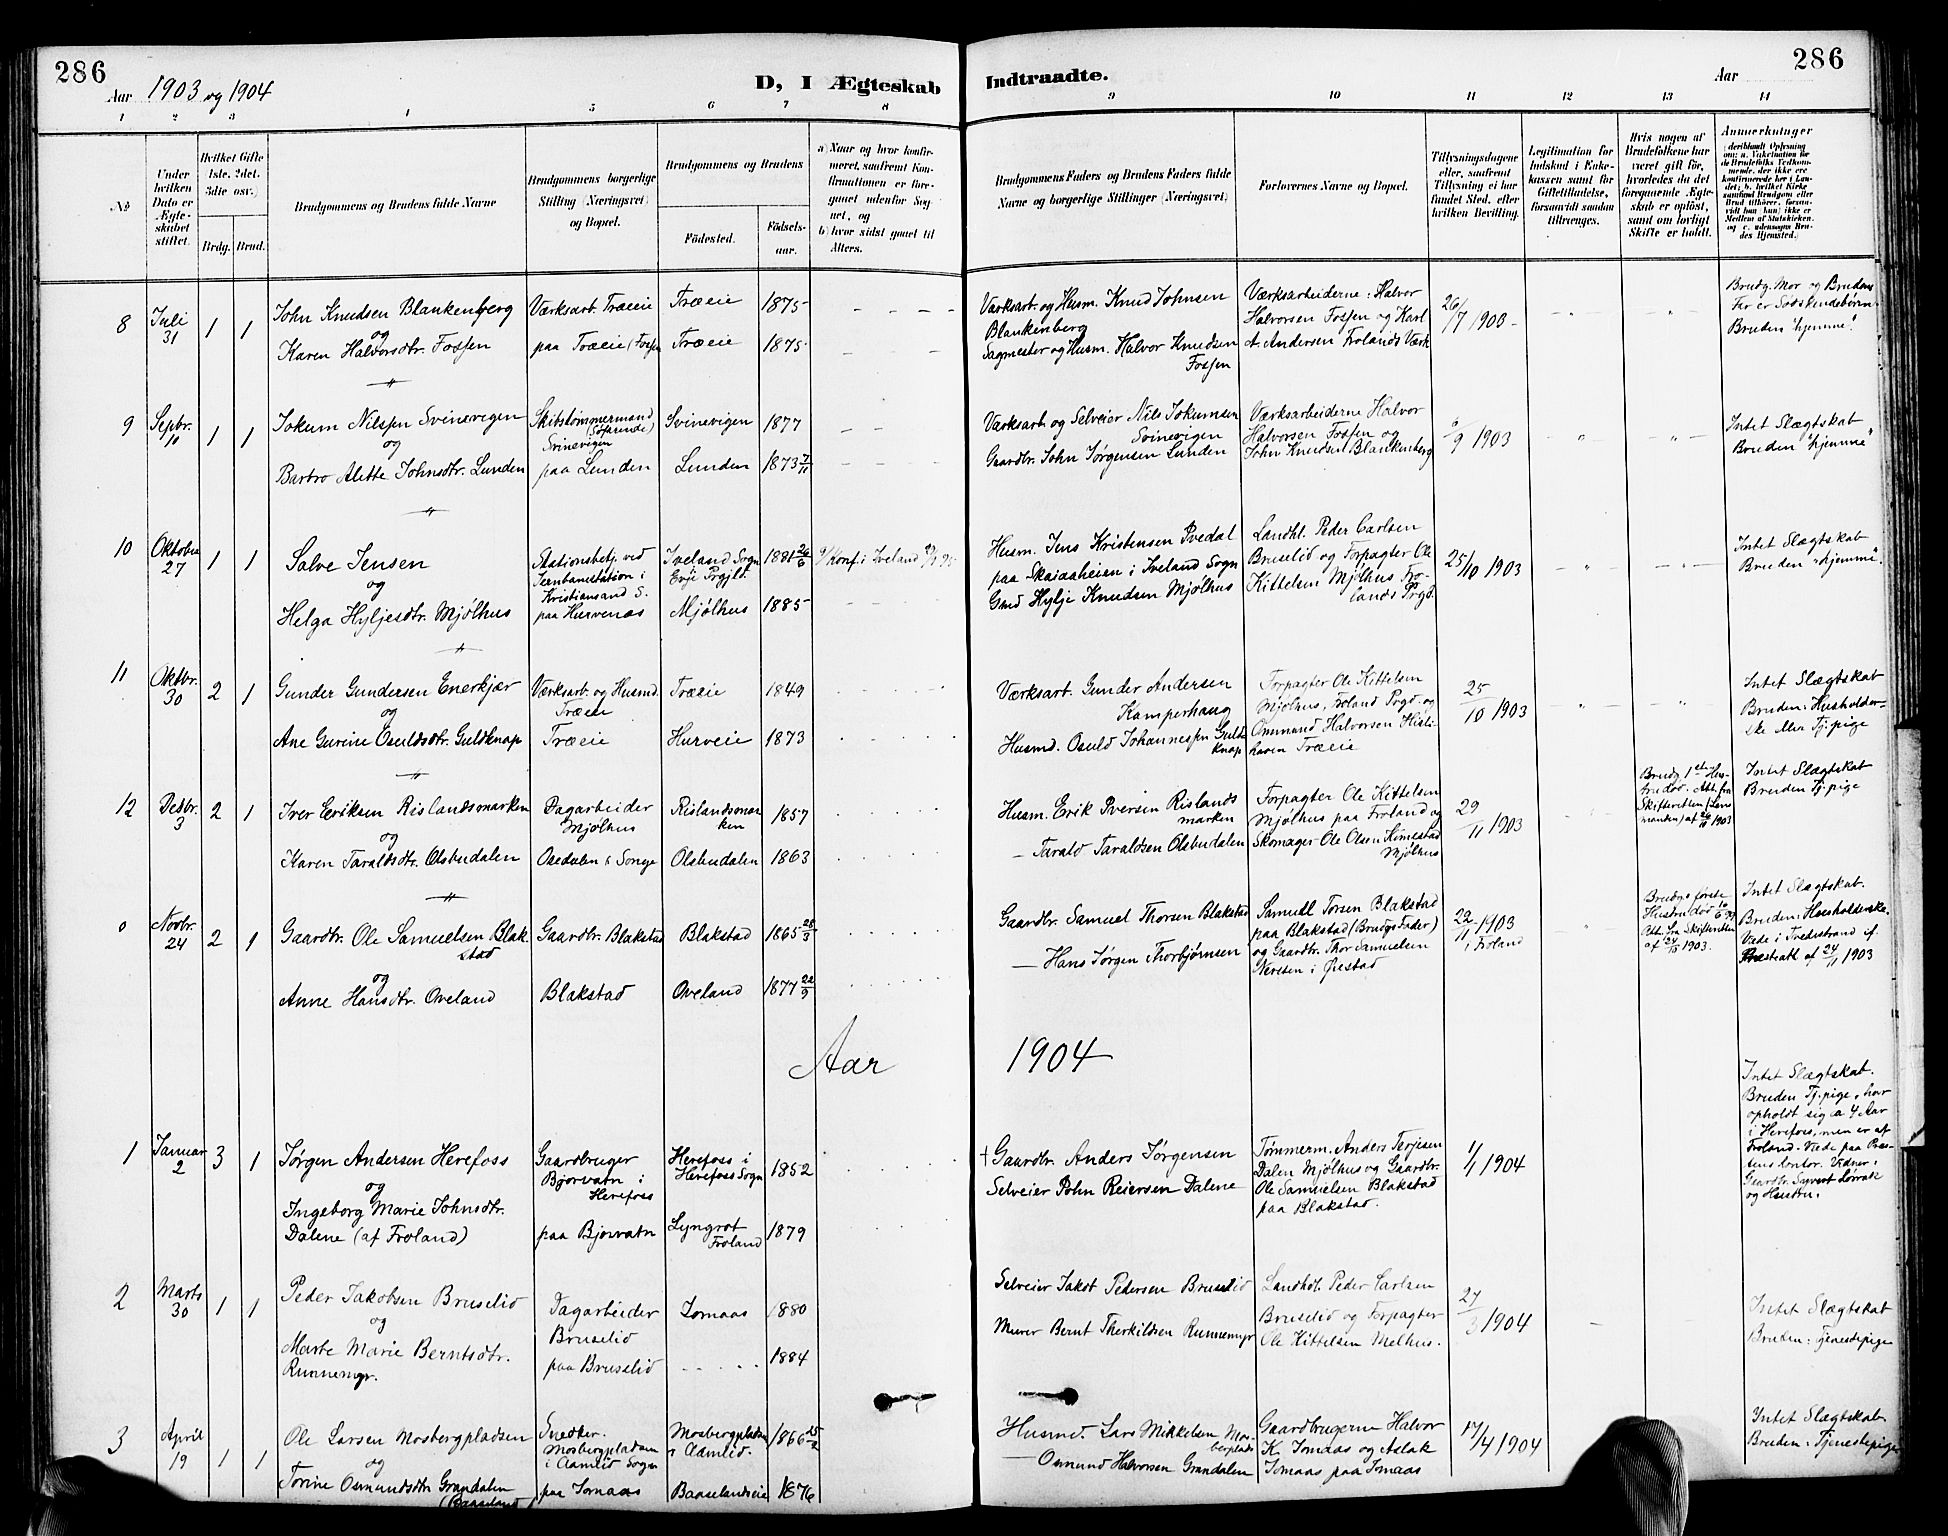 286
Aar 1903 og 1904
D, I Ægteskab Indtraadte.
Aar
286
1 2 3 4 5 6 7 8 9 10 11 12 13 14
No
Under hvilken Dato er Ægteskabet stiftet.
Hvilket Gifte 1ste, 2det, 3die osv.)
Brdg. Brud.
Brudgommens og Brudens fulde Navne
Brudgommens borgerlige Stilling (Næringsvei) og Bopæl.
Brudgommens og Brudens
Fødested.
Fødselsaar.
a) Naar og hvor konfirmeret, saafremt Konfirmationen er foregaaet udenfor Sognet, og
b) hvor sidst gaaet til Alters.
Brudgommens Faders og Brudens Faders fulde Navne og borgerlige Stillinger (Næringsvei)
Forlovernes Navne og Bopæl.
Tillysningsdagene eller, saafremt Tillysning ei har fundet Sted, efter hvilken Bevilling.
Legitimation for Indskud i Enkekassen samt for Giftetilladelse, forsaavidt saadan tiltrænges.
Hvis nogen af Brudefolkene har været gift før, hvorledes da det foregaaende Ægteskab er opløst, samt om lovligt Skifte er holdt.
Anmerkninger
8 Juli 31 1 1
John Knudsen Blankenberg
og
Karen Halvorsdtr. Fossen
Værksarb. Træeie
paa Træeie (Fossen
Træeie 1875
Træeie 1875
Værksarb. og Husm. Knud Johnsen
Blankenberg
Sagmester og Husm. Halvor Knudsen
Fossen
Værksarbeiderne: Halvor
Halvorsen Fossen og Karl
A. Andersen Frolands Værk
26/7 1903
Brudg. Mor og Brudens
Far er Sødskendebørn.
Bruden "hjemme".
9 Sepbr. 10 1 1
Jokum Nilssen Svinevigen
og
Barbro Alette Johnsdtr. Lunden
Skibstømmermand
(Søfarende)
Svinevigen
paa Lunden
Svinevigen 1877
Lunden 1873 7/11
Værksarb og Selveier Nils Jokumsen
Svinevigen
Gaardbr. John Jørgensen Lunden
Værksarbeiderne Halvor
Halvorsen Fossen og
John Knudsen Blankenberg
6/9 1903
Intet Slægtskab
Bruden "hjemme"
10 Oktober 27 1 1
Salve Jensen
og
Helga Hyljesdtr. Mjølhus
Stationsbetj. ved
Jernbanestation i
Kristiansand S.
paa Hurvenæs
Iveland Sogn
Evje Prgjld.
1881 26/6
Mjølhus 1885
Konf. i Iveland
Husm. Jens Kristensen Ivedal
paa Skaiaaheien i Iveland Sogn
Gmd Hylje Knudsen Mjølhus
Landhl. Peder Carlsen
Bruselid og Forpagter Ole
Kittelsen Mjølhus Fro-
lands Prgd.
25/10 1903
Intet Slægtskab
Bruden "hjemme".
11 Oktbr. 30 2 1
Gunder Gundersen Enerkjær
og
Ane Gurine Osuldsdtr. Guldknap
Værksarb. og Husmd.
Træeie
Træeie
Træeie 1849
Hurveie 1873
Værksarb. Gunder Andersen
Kamperhaug
Husmd. Osuld Johannessen Guld
knap
Forpagter Ole Kittelsen
Mjølhus, Froland Prgd. og
Ommund Halvorsen Hisli-
haven Træeie
25/10 1903
Intet Slægtskab
Bruden: Husholder-
ske Tj.pige
12 Decbr. 3 2 1
Iver Eriksen Rislandsmarken
og
Karen Taraldsdtr. Olsbudalen
Dagarbeider
Mjølhus
Osedalen & Songe
Rislandsmar
ken
1857
Olsbudalen 1863
Husm. Erik Iversen Rislands
marken
— Tarald Taraldsen Olsbudalen
Forpagter Ole Kittelsen
Mjølhus paa Froland og
Skomager Ole Olsen Kimestad
Mjølhus
29/11 1903
Brudg. 1ste Hus-
tru død. Att. fra
Skifteretten (Lens
manden) af 26/11 1903
Intet Slægtskab
Bruden Tj.pige
0 Novbr. 24 2 1
Gaardbr. Ole Samuelsen Blak
stad
og
Anne Hansdtr. Oveland
Gaardbr. Blakstad
Blakstad
Blakstad 1865 28/3
Oveland 1877 22/9
Gaardbr. Samuel Thorsen Blakstad
— Hans Jørgen Thorbjørnsen
Samuel Torsen Blakstad
paa Blakstad (Brudgs Fader)
og Gaardbr. Thor Samuelsen
Nersten i Øiestad
22/11 1903
i Froland
Brudgs første
Hustru død
Att. fra Skifteretten
af 24/11 1903.
Intet Slægtskab.
Bruden: Husholderske.
Viede i Tvedestrand af
24/11 1903
Aar 1904
1 Januar 2 3 1
Jørgen Andersen Herefoss
og
Ingeborg Marie Johnsdtr.
Dalene (af Froland)
Gaardbruger
Bjorvatn i
Herefoss
paa Bjorvatn
Herefoss i
Herefoss Sogn
1852
Lyngrot
Froland
1879
† Gaardbr. Anders Jørgensen
Selveier John Reiersen Dalene
Tømmerm. Anders Terjesen
Dalen Mjølhus og Gaardbr.
Ole Samuelsen Blakstad
paa Blakstad.
1/1 1904
Intet Slægtskab.
Bruden Tj.pige, har
opholdt sig ca 4 Aar
i Herefoss, men er af
Froland. Viede paa Præs-
tens kontor. Vidner:
Gaardbr. Syvert Lørrade
og Hustru.
2 Marts 30 1 1
Peder Jakobsen Bruselid
og
Marte Marie Berntsdtr.
Runnemyr.
Dagarbeider
Bruselid
paa Bruselid
Jomaas 1880
1884
Selveier Jakob Pedersen Bruselid
Murer Bernt Therkildsen Runnemyr
Landhdl. Peder Carlsen
Bruselid og Forpagter
Ole Kittelsen Mølhus.
27/3 1904
Intet Slægtskab
Bruden: Tjenestepige
3 April 19 1 1
Ole Larsen Mosbergpladsen
og
Torine Osmundsdtr Grandalen
(Baaseland)
Snedker.
Mosbergpladsen
i Aamlid Sogn
paa Jomaas
Mosbergpladsen
i Aamlid.
1866 25/2
Baaselandseie 1876
Husmd. Lars Mikkelsen Mos-
bergplads
— Osmund Halvorsen Grandalen
Gaardbrugerne Halvor
K. Jomaas og Aslak
Jomaas paa Jomaas
17/4 1904
Intet Slægtskab.
Bruden: Tjenestepige